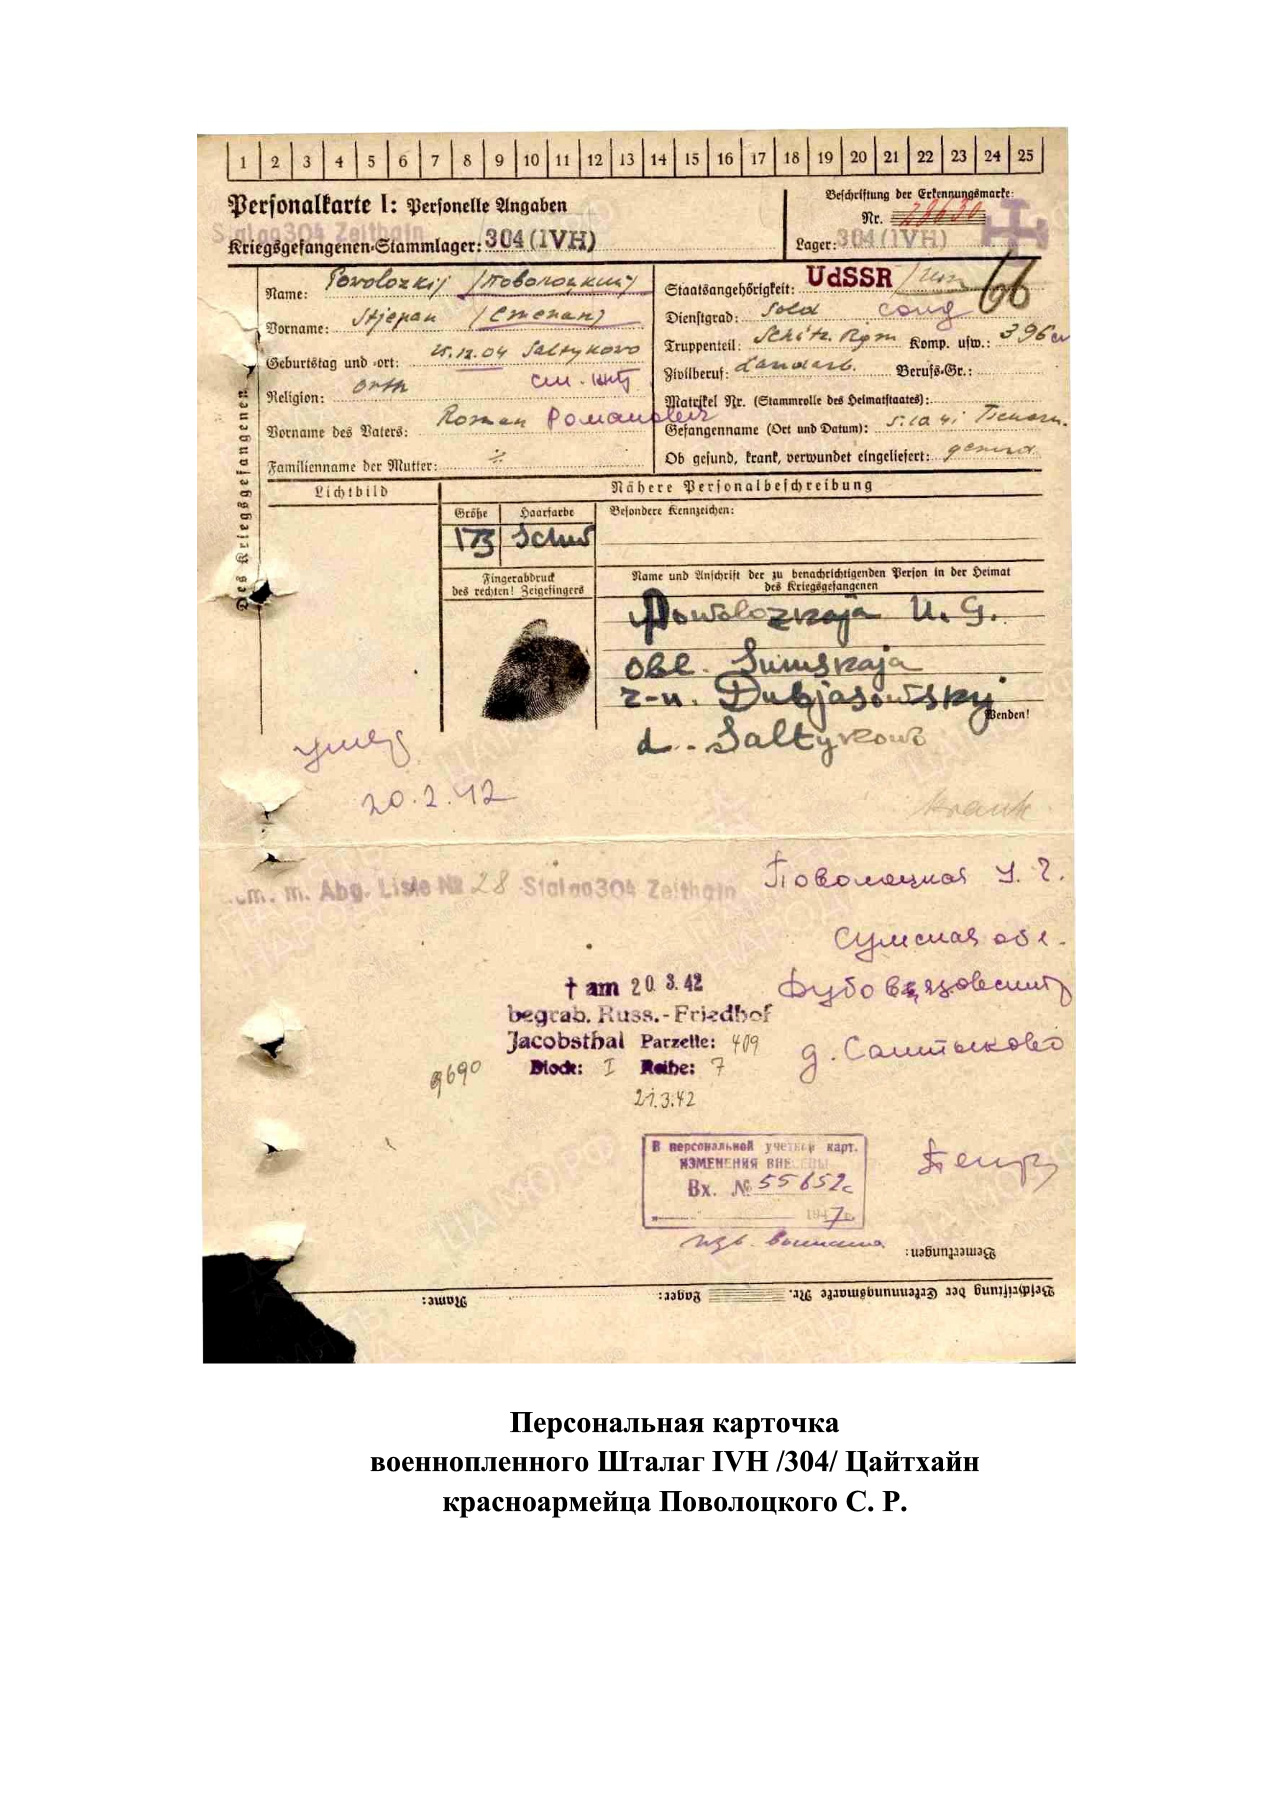 1 2 3 4 5 6 7 8 9 10 11 12 13 14 15 16 17 18 19 20 21 22 23 24 25
Personalkarte I: Personelle Angaben
Beschriftung der Erkennungsmarke:
Nr. 28630
Stalag 304 Zeithain
Kriegsgefangenen-Stammlager: 304 (IVH)
Lager: 304 (IVH)
Des Kriegsgefangenen
Name: Povolozkij /Поволоцкий/
Vorname: Stjepan /Степан/
Geburtstag und -ort: 25.12.04 Saltykovo
Religion: orth
Vorname des Vaters: Roman Романович
Familienname der Mutter:
Staatsangehörigkeit: UdSSR
66
Dienstgrad: Sold солд
Truppenteil: Schütz. Rgm Komp. usw.: 396
Zivilberuf: Landarb. Berufs-Gr.:
Matrikel Nr. (Stammrolle des Heimatstaates):
Gefangenname (Ort und Datum): 5.10 41
Ob gesund, krank, verwundet eingeliefert: gesund
Lichtbild
Nähere Personalbeschreibung
Größe Haarfarbe Besondere Kennzeichen:
173 Schw
Fingerabdruck
des rechten! Zeigefingers
Name und Anschrift der zu benachrichtigenden Person in der Heimat
des Kriegsgefangenen
Powolozkaja U. G.
obl. Sumskaja
r-n. Dubjasowskij
Wenden!
d. Saltykowo
умер
20.2.42
krank
m. Abg. Liste № 28 Stalag 304 Zeithain
Поволоцкая У. Г.
Сумская обл.
д. Салтыково
† am 20 3.42
begrab. Russ.-Friedhof
Jacobsthal Parzelle: 409
Block: I Reihe: 7
21.3.42
9690
В персональной учетной карт.
ИЗМЕНЕНИЯ ВНЕСЕНЫ
Вх. № 55652с
1947 г.
изв. выслана
Bemerkungen:
Beschriftung der Erkennungsmarke Nr. Lager: Name:
Персональная карточка
военнопленного Шталаг IVH /304/ Цайтхайн
красноармейца Поволоцкого С. Р.